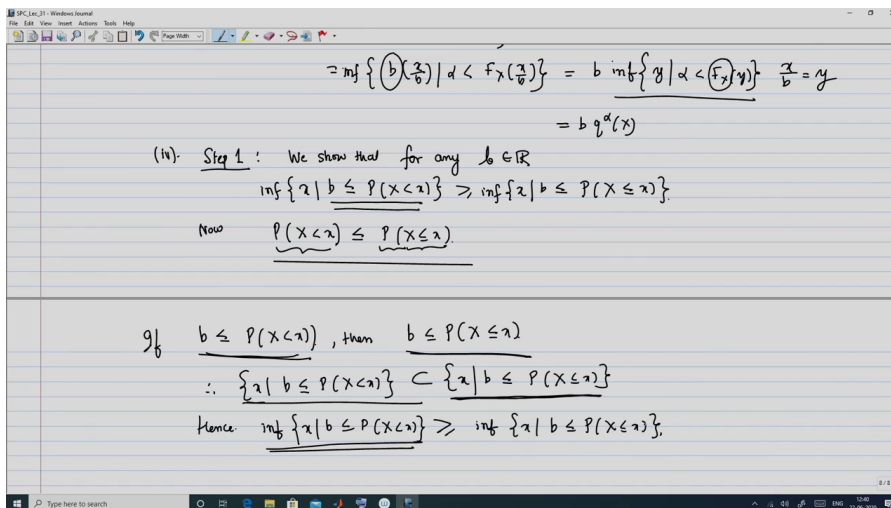 SPC_Lec_31 - Windows Journal
File Edit View Insert Actions Tools Help
Page Width
= inf { b (x/b) | α < F_X(x/b) } = b inf { y | α < F_X(y) } x/b = y
= b q^α(X)
(iv). Step 1 : We show that for any b ∈ ℝ
inf {x | b ≤ P(X<x)} ≥ inf {x | b ≤ P(X≤x)}.
Now P(X<x) ≤ P(X≤x).
If b ≤ P(X<x)), then b ≤ P(X≤x)
∴ {x | b ≤ P(X<x)} ⊂ {x | b ≤ P(X≤x)}
Hence. inf {x | b ≤ P(X<x)} ≥ inf {x | b ≤ P(X≤x)}.
8/8
Type here to search
ENG
12:40
22-06-2020